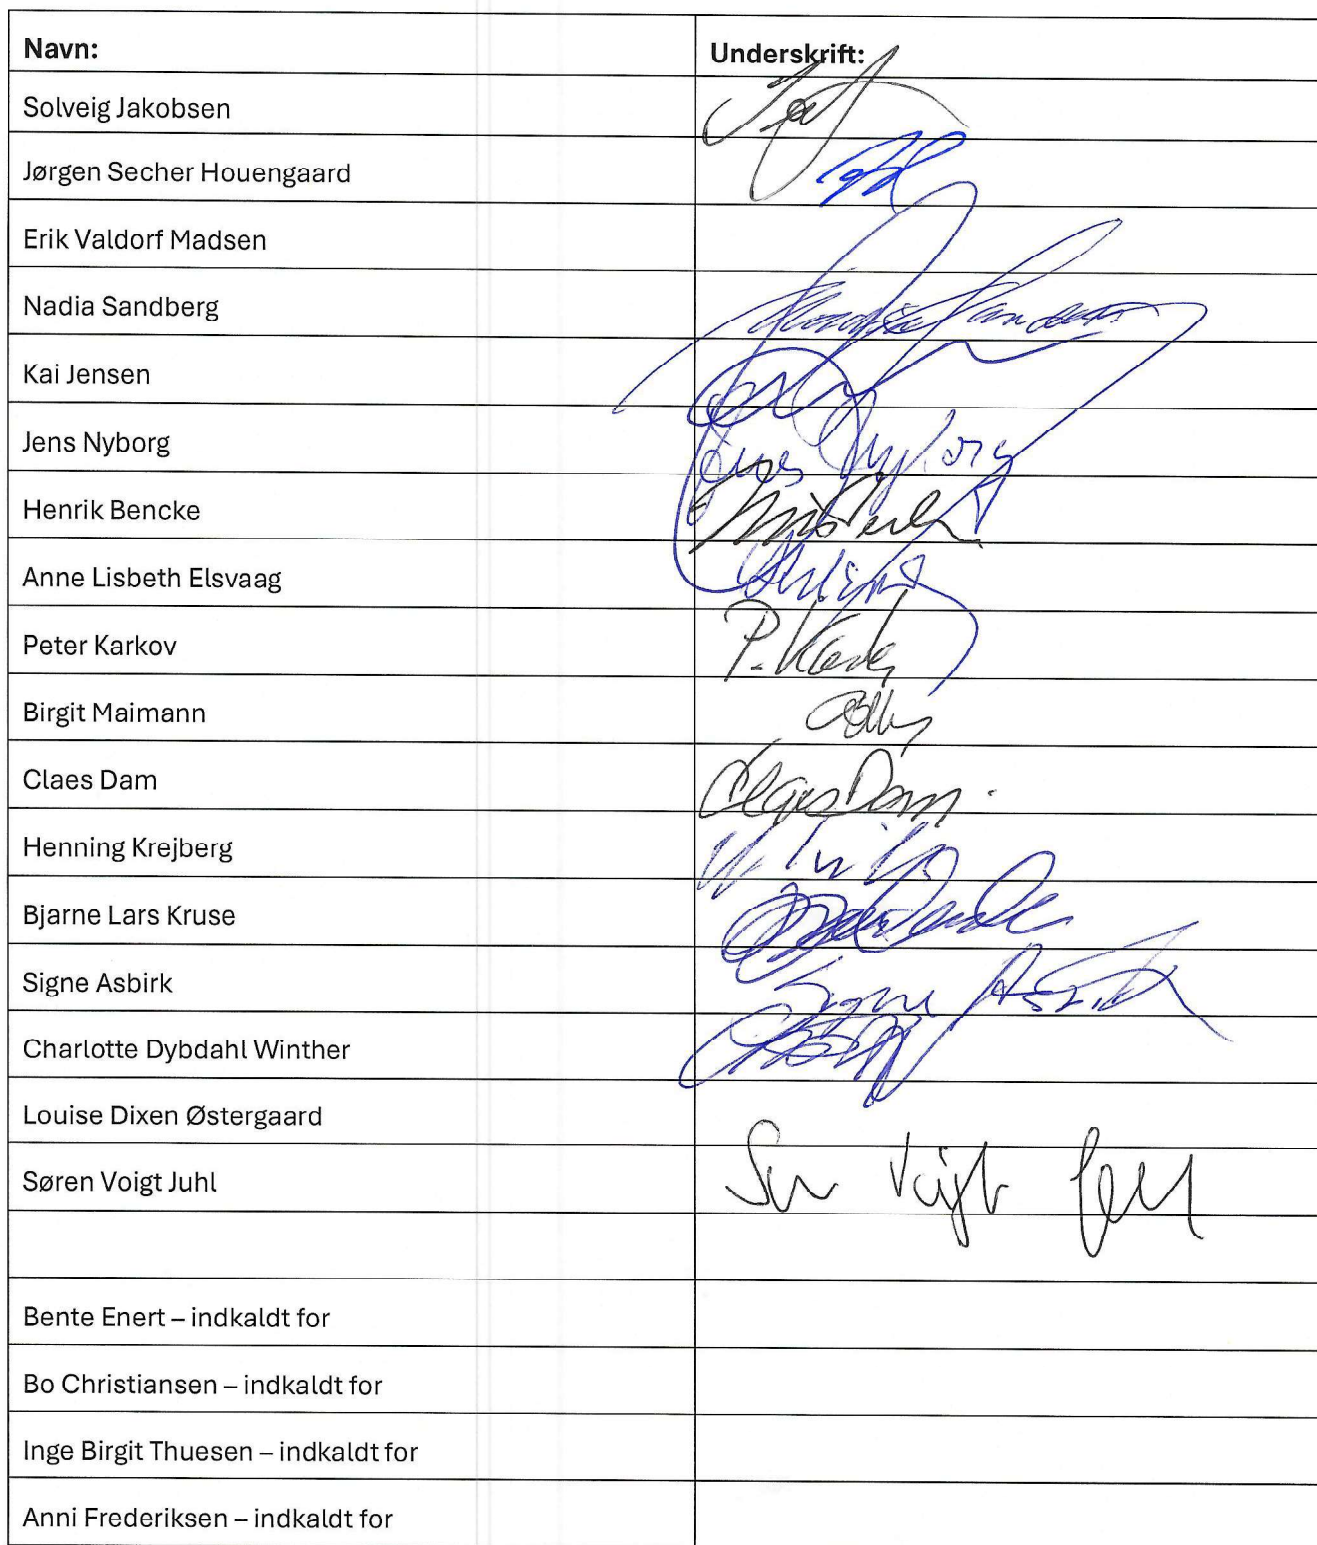 Navn: Underskrift:
Solveig Jakobsen
Jørgen Secher Houengaard
Erik Valdorf Madsen
Nadia Sandberg
Kai Jensen
Jens Nyborg Jens Nyborg
Henrik Bencke
Anne Lisbeth Elsvaag
Peter Karkov P. Karkov
Birgit Maimann
Claes Dam Claes Dam.
Henning Krejberg
Bjarne Lars Kruse
Signe Asbirk Signe Asbirk
Charlotte Dybdahl Winther
Louise Dixen Østergaard
Søren Voigt Juhl Søren Voigt Juhl
Bente Enert – indkaldt for
Bo Christiansen – indkaldt for
Inge Birgit Thuesen – indkaldt for
Anni Frederiksen – indkaldt for